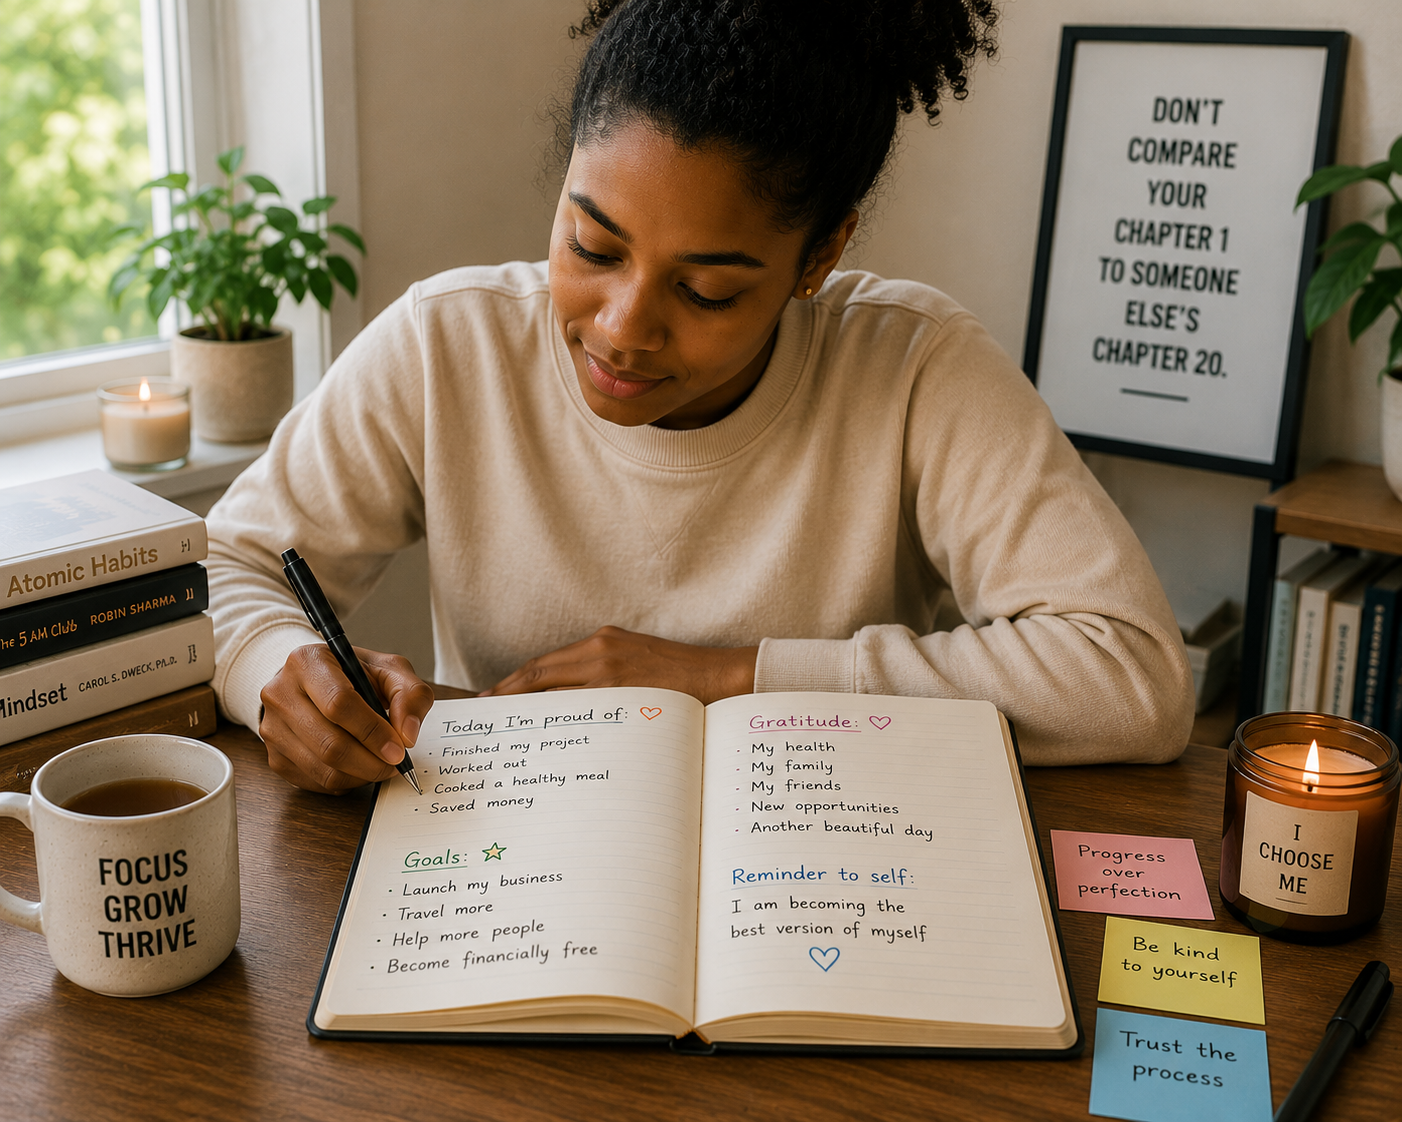 DON'T
COMPARE
YOUR
CHAPTER 1
TO SOMEONE
ELSE'S
CHAPTER 20.
Atomic Habits
The 5 AM Club ROBIN SHARMA
Mindset CAROL S. DWECK, PH.D.
FOCUS
GROW
THRIVE
Today I'm proud of:
· Finished my project
· Worked out
· Cooked a healthy meal
· Saved money
Goals:
· Launch my business
· Travel more
· Help more people
· Become financially free
Gratitude:
· My health
· My family
· My friends
· New opportunities
· Another beautiful day
Reminder to self:
I am becoming the
best version of myself
Progress
over
perfection
Be kind
to yourself
Trust the
process
I
CHOOSE
ME